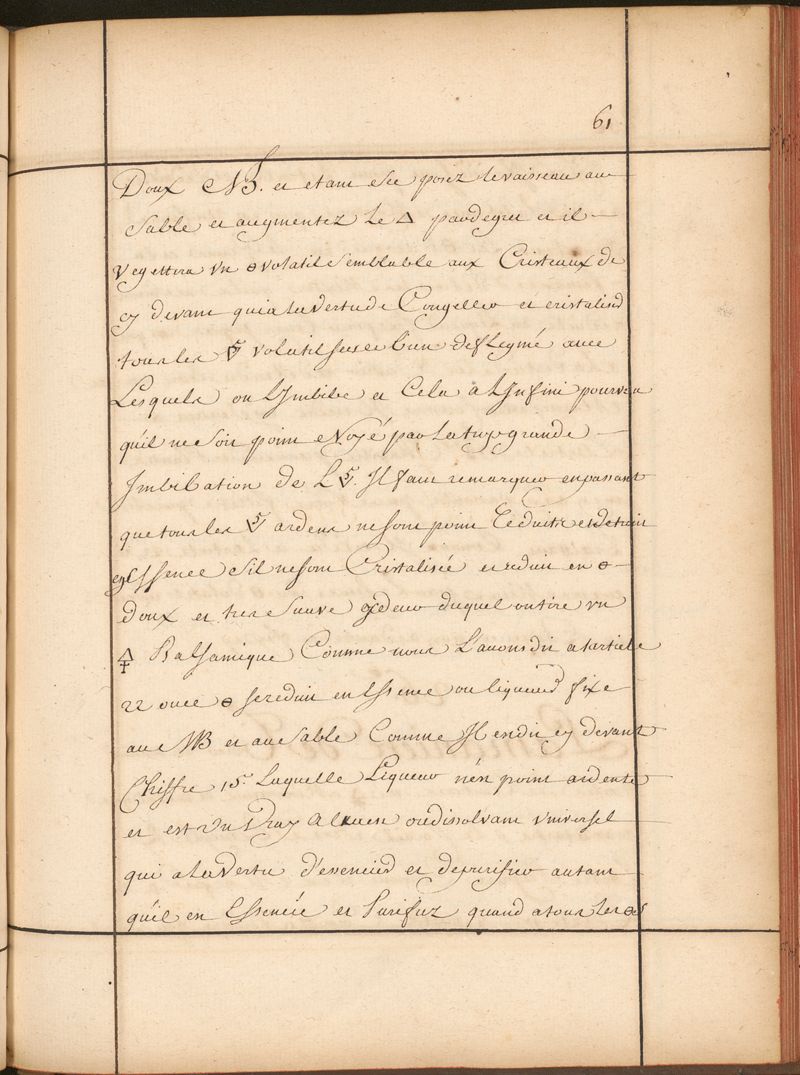 61
Doux MB. et etant sec posez le vaisseau au
Sable et augmentez le 🜂 par degrez et il
vegettera un 🜔 volatil semblable aux Cristeaux de
cy devant qui a la vertu de Congeller et cristaliser
tous les volatils secs bien deflegmé avec
Lesquels on L'Jmbibe et Cela a L'Jnfini pourveu
qu'il ne soit point Noyé par la trop grande
Jmbibation de L Jl faut remarquer en passant
que tous les ardens ne sont point Reduits et
en Essence s'il ne sont Cristalisée et reduit en 🜔
Doux et tres Suave duquel on tire un
🜍 Balsamique Comme nous L'avons dit a larticle
22 🜔 se reduit en Essence ou liqueur fixe
au MB et au Sable Comme Jl en dit cy devant
Chiffre 15 Laquelle Liqueur n'est point ardente
et est un Vray alKaest ou dissolvant Universel
qui a la Vertu d'essencier et depurifier autant
qu'il en Essencié et Purifiez quand a tous les 🜔s